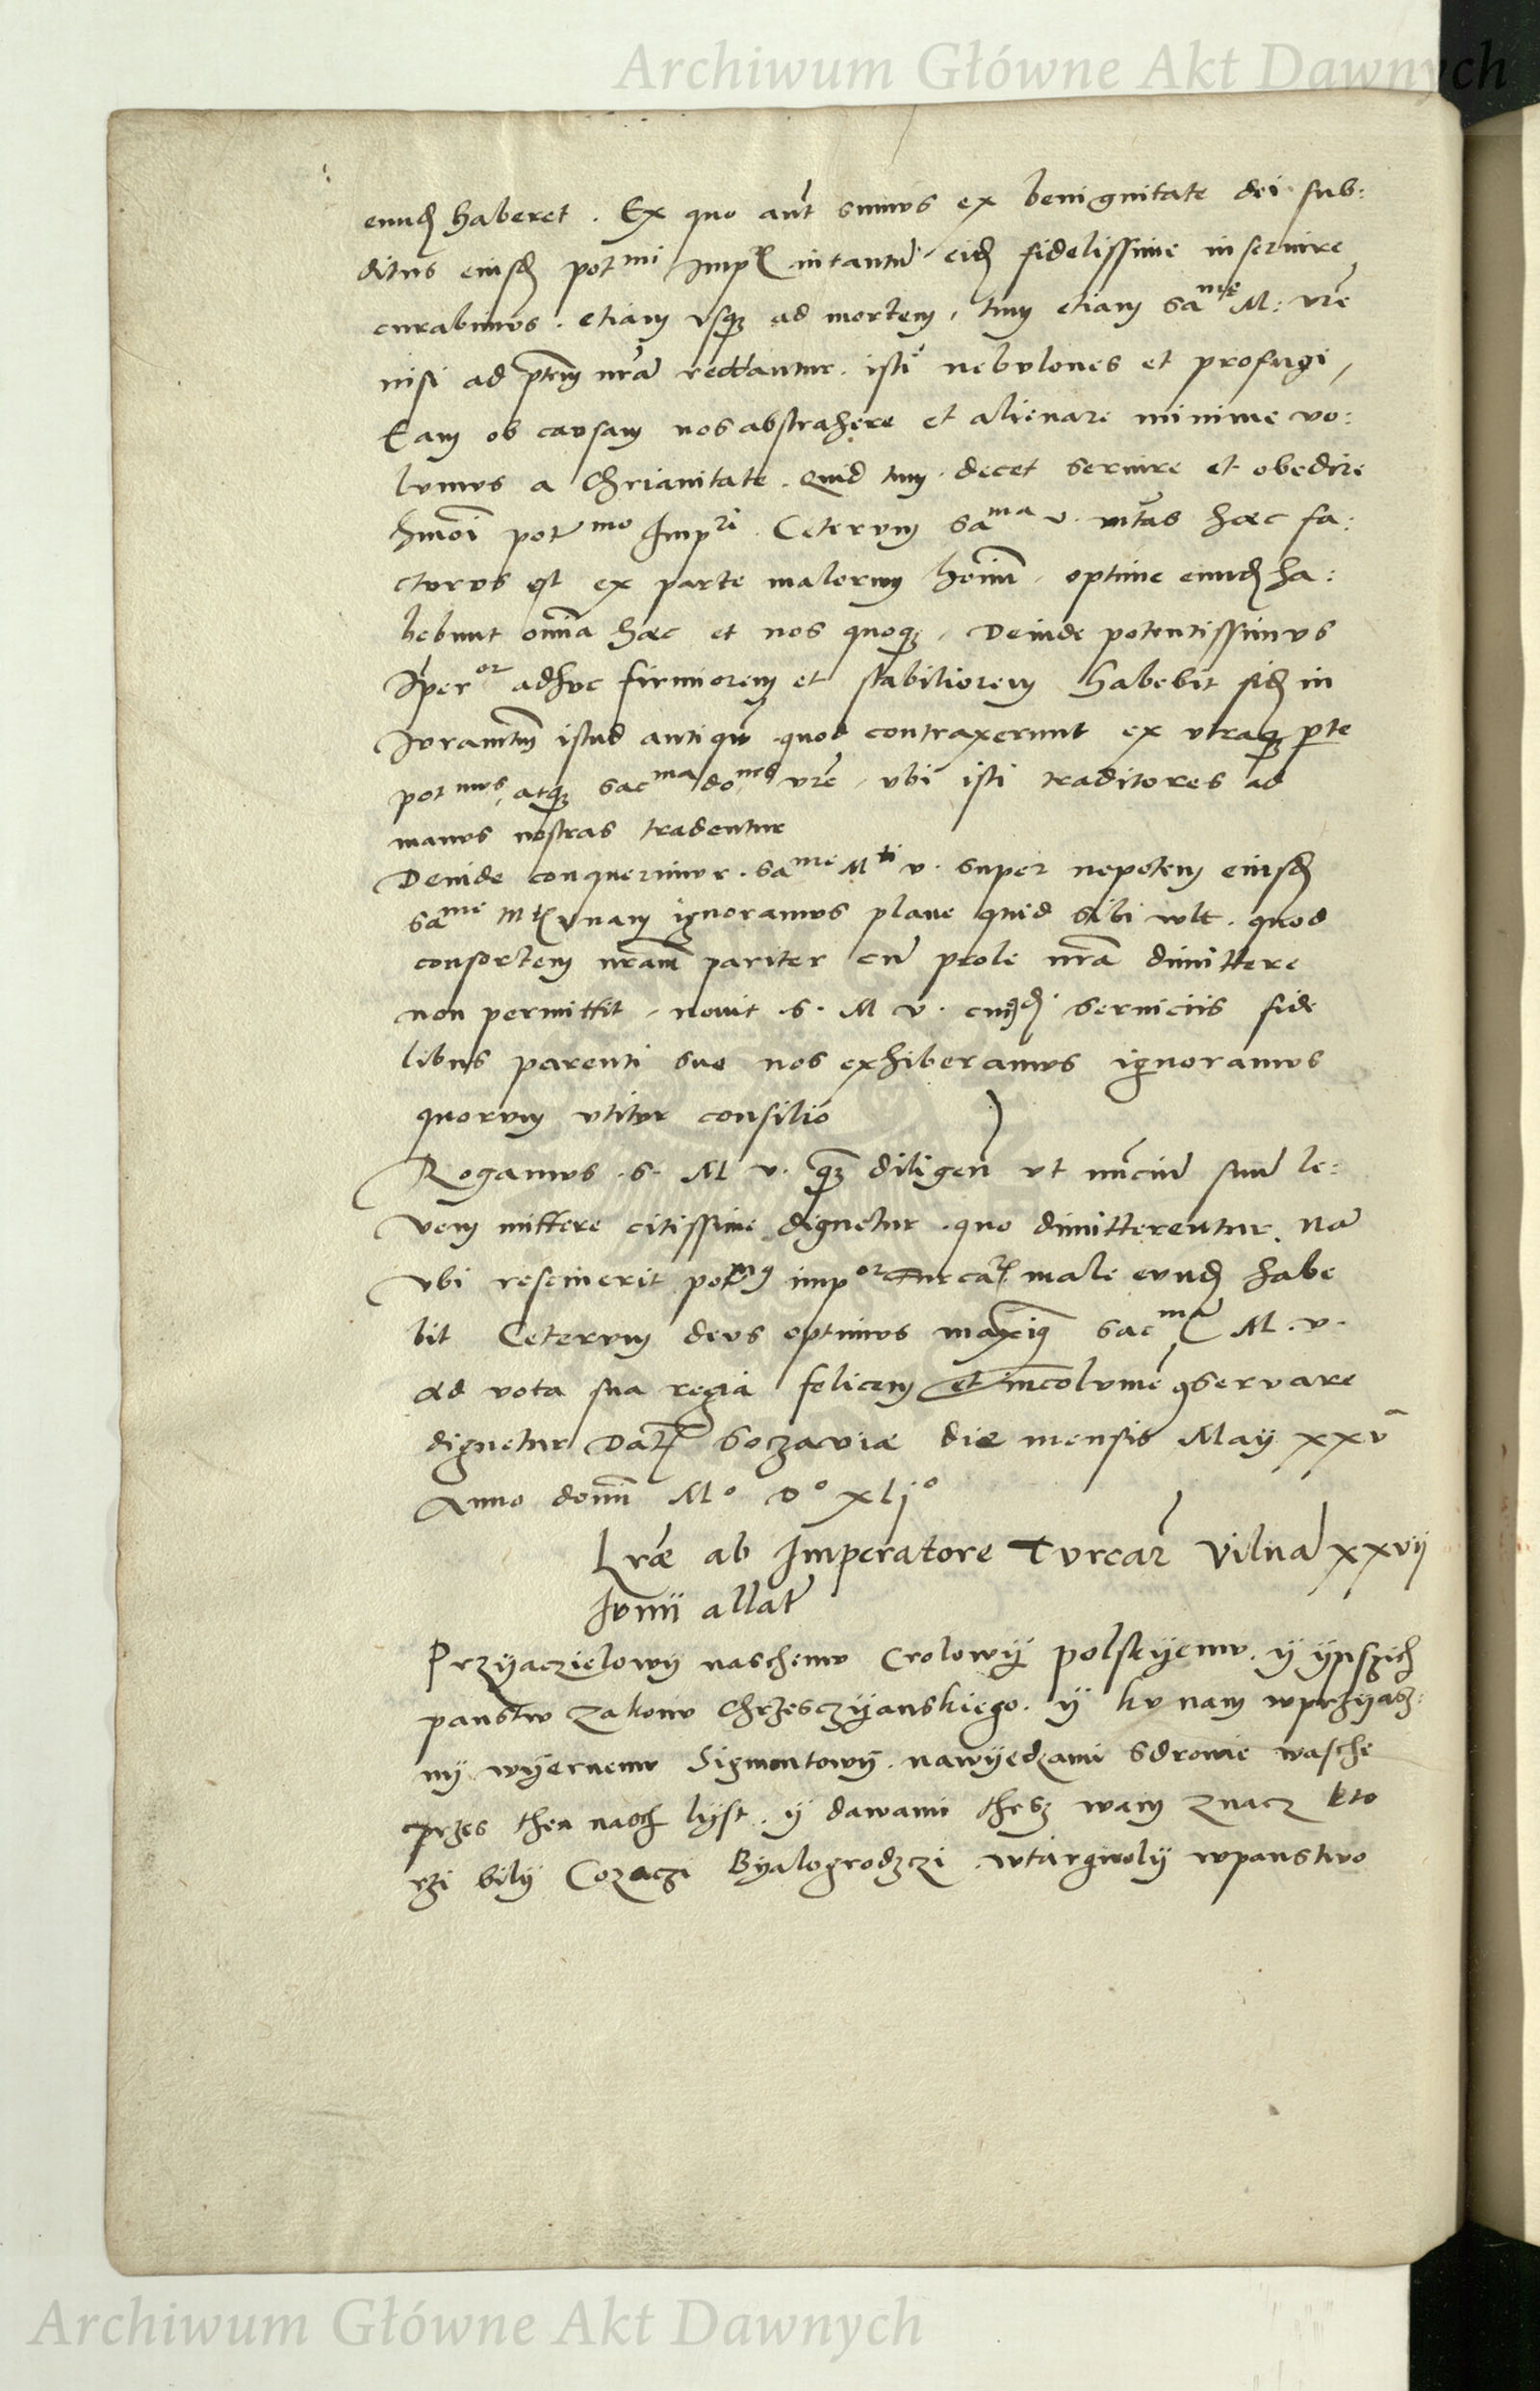 Archiwum Główne Akt Dawnych
eundẽ haberet. Ex quo aũt sumus ex benignitate dei sub:
ditus eiusdẽ pot mi Impr̃ intantũ eidẽ fidelissime inseruire
curabimus. etiam vsq3 ad mortem, tum etiam Sa me M: vr̃e
nisi ad ptẽm nr̃a reddantur. isti nebulones et profugi,
Eam ob causam nos abstrahere et alienare minime vo:
lumus a Chrianitate. Quid tm̃. decet seruire et obedire
hmõi pot mo Imp ri. Ceterum Sa ma v. mtãs haec fa:
cturus est ex parte malorum hoĩm, optime eundẽ ha:
bebunt om̃ia haec et nos quoq3, Deinde potentissimus
Iper or adhuc firmiorem et stabiliorem habebit fidẽ in
Iuramtũm istud antiqũ quod contraxerunt ex vtraq3 pte
pot mus, atq3 Sac ma do nes vr̃e, vbi isti traditores ad
manus nostras tradentur
Deinde conquerimur. Sa me M ti v. super nepotem eiusdẽ
Sa me Mt̃ v nam ignoramus plane quid sibi vult. quod
consortem nr̃am pariter cũ prole nr̃a dimittere
non permittit, nouit .S. M v. seruiciis fide
libus parenti suo nos exhiberamus ignoramus
quorum vtitur consilio
Rogamus .S. M v. q3 diligen̄ vt nũcium suũ le:
vem mittere citissime dignetur .quo dimitterentur. Nã
vbi resciuerit pot mus imp or Turcar̃ male eundẽ habe
bit Ceterum deus optimus maxiq3 Sac mã M. v.
ad vota sua regia felicem et incolumẽ 9seruare
dignetur Dat̃ Soczaviæ die mensis May xxv
Anno domĩ M° D° xlj°
Lr̃æ ab Imperatore Turcar̃ Vilnã xxvij
Iunii allat̃
Przyaczielowy naschemu Crolowÿ polskyemu. ÿ ÿnszich
panstw zakonu Chrzesczÿanskiego. ÿ ku nam wprzÿasz:
nÿ wÿernemu Sigmontowÿ. nawÿedzami Sdrowie wasche
przes then nasch lÿst. ÿ dawami thesz wam znacz kto
rzi bilÿ Cozaczi Byalogrodzczi wtargnolÿ wpanstwo
Archiwum Główne Akt Dawnych